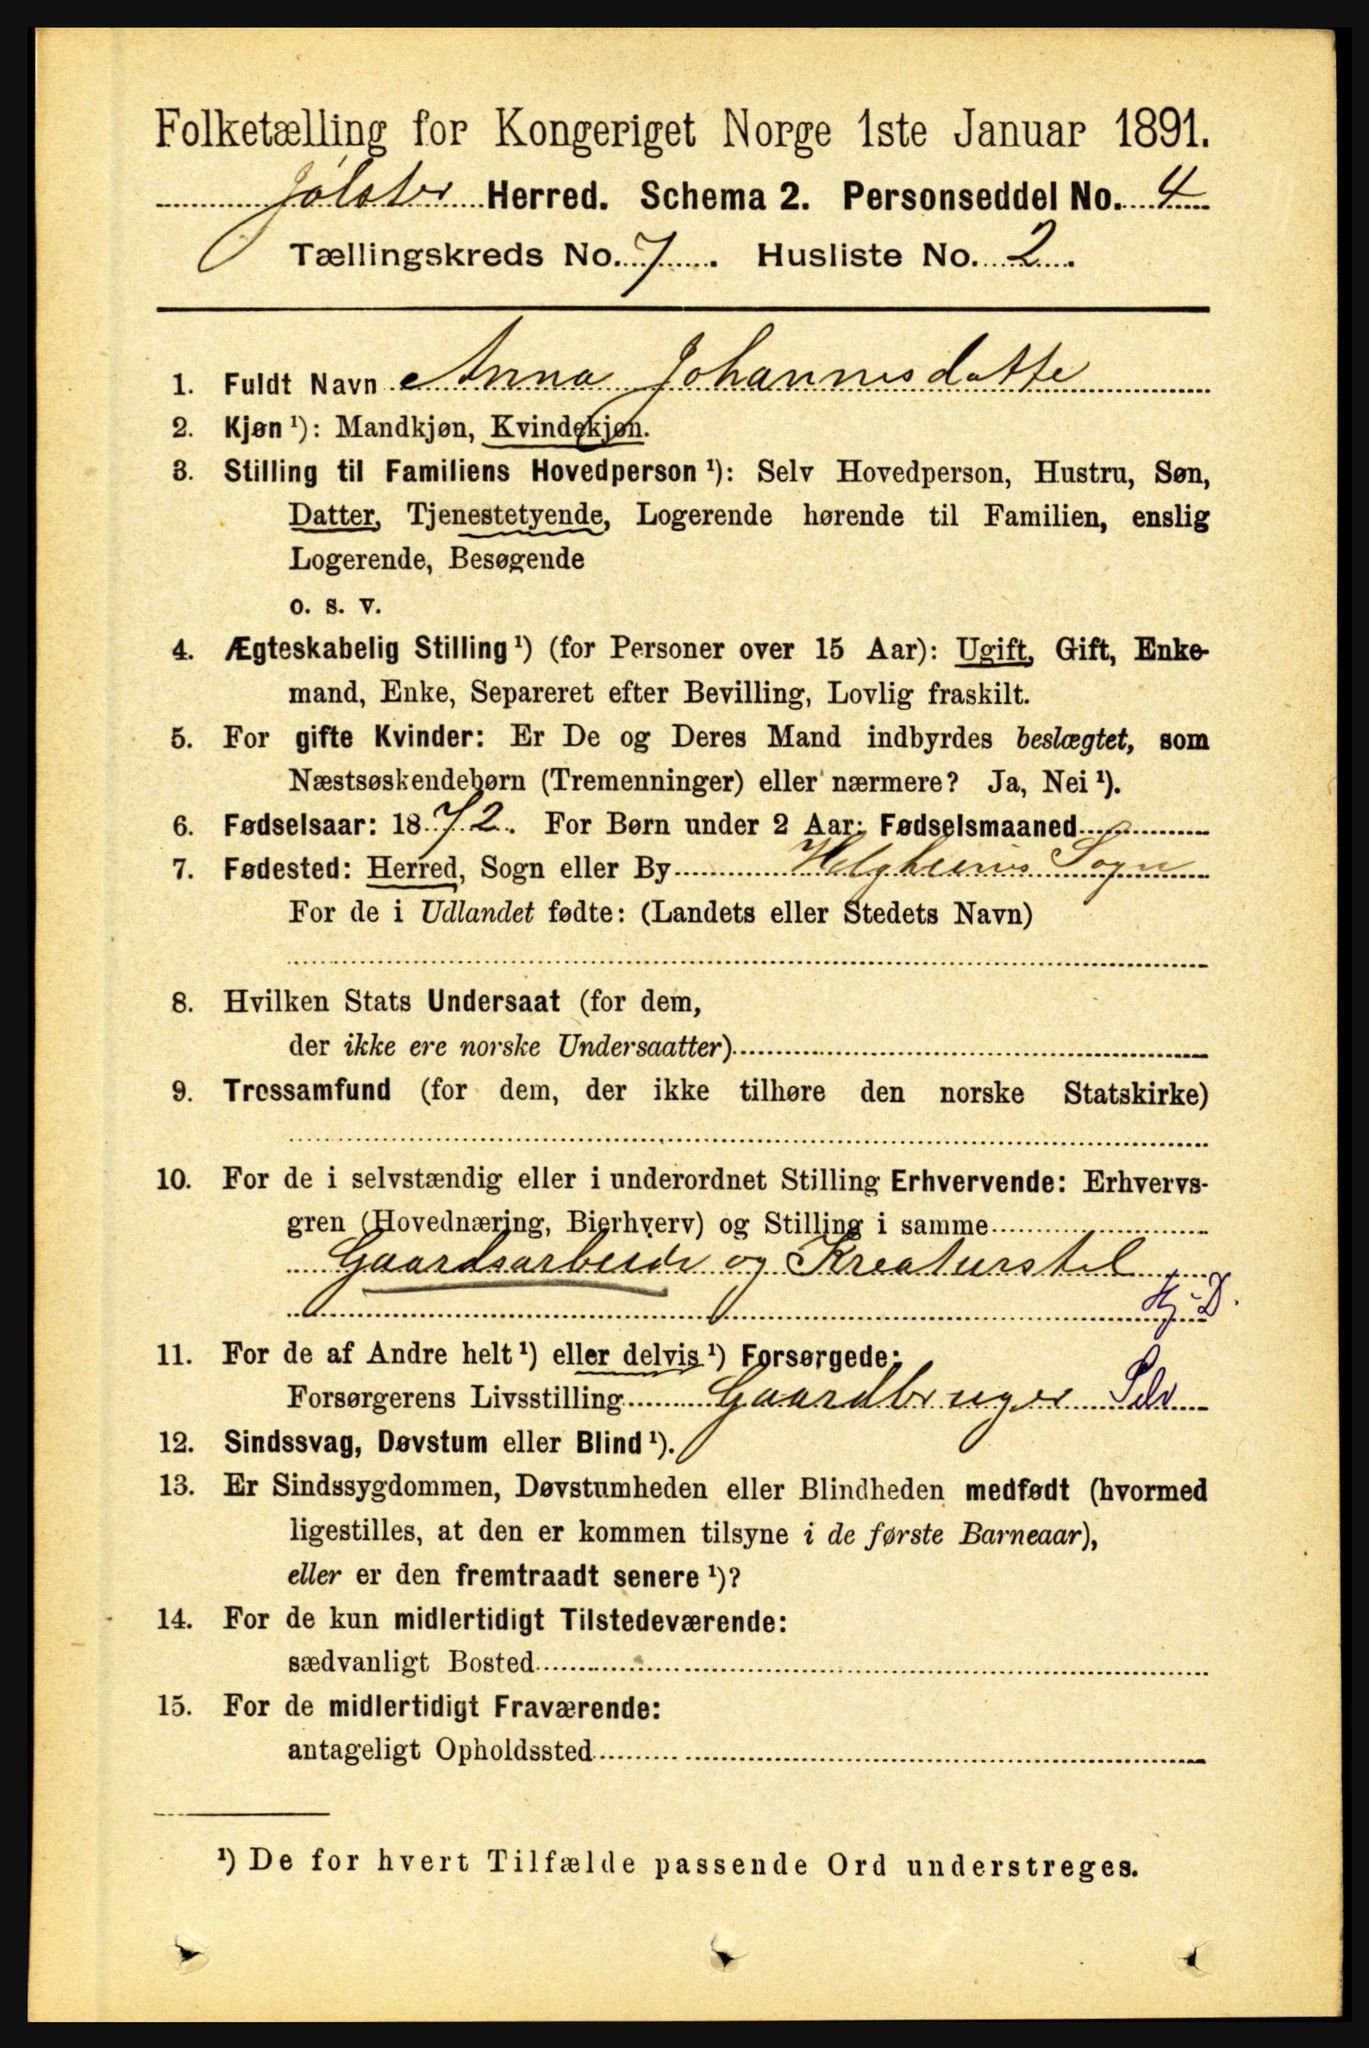 Folketælling for Kongeriget Norge 1ste Januar 1891.
Jølster Herred. Schema 2. Personseddel No. 4
Tællingskreds No. 7. Husliste No. 2.
1. Fuldt Navn Anna Johannesdatte
2. Kjøn ¹): Mandkjøn, Kvindekjøn.
3. Stilling til Familiens Hovedperson ¹): Selv Hovedperson, Hustru, Søn,
Datter, Tjenestetyende, Logerende hørende til Familien, enslig
Logerende, Besøgende
o. s. v.
4. Ægteskabelig Stilling ¹) (for Personer over 15 Aar): Ugift, Gift, Enke-
mand, Enke, Separeret efter Bevilling, Lovlig fraskilt.
5. For gifte Kvinder: Er De og Deres Mand indbyrdes beslægtet, som
Næstsøskendebørn (Tremenninger) eller nærmere? Ja, Nei ¹).
6. Fødselsaar: 1872. For Børn under 2 Aar: Fødselsmaaned
7. Fødested: Herred, Sogn eller By Helgheims Sogn
For de i Udlandet fødte: (Landets eller Stedets Navn)
8. Hvilken Stats Undersaat (for dem,
der ikke ere norske Undersaatter)
9. Trossamfund (for dem, der ikke tilhøre den norske Statskirke)
10. For de i selvstændig eller i underordnet Stilling Erhvervende: Erhvervs-
gren (Hovednæring, Bierhverv) og Stilling i samme
Gaardsarbeide og Kreaturstel
Hj-D.
11. For de af Andre helt ¹) eller delvis ¹) Forsørgede:
Forsørgerens Livsstilling Gaardbruger Selv
12. Sindssvag, Døvstum eller Blind ¹).
13. Er Sindssygdommen, Døvstumheden eller Blindheden medfødt (hvormed
ligestilles, at den er kommen tilsyne i de første Barneaar),
eller er den fremtraadt senere ¹)?
14. For de kun midlertidigt Tilstedeværende:
sædvanligt Bosted
15. For de midlertidigt Fraværende:
antageligt Opholdssted
¹) De for hvert Tilfælde passende Ord understreges.